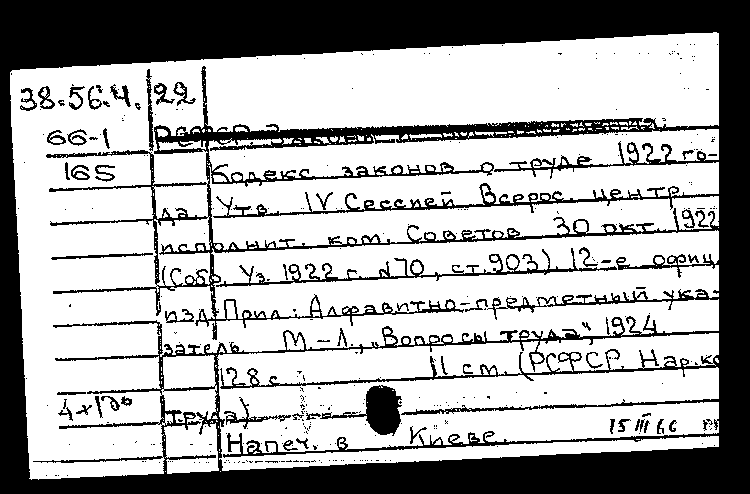 38.56.4. 22
66-1 РСФСР. Законы и постановления.
165 Кодекс законов о труде 1922 го-
да. Утв. IV Сессией Всерос. центр.
исполнит. ком. Советов 30 окт. 1922
(Собр. Уз. 1922 г. №70, ст. 903) 12-е офиц.
изд. Прил.: Алфавитно-предметный ука-
затель М.-Л., „Вопросы труда", 1924.
128 с. 11 см. (РСФСР. Нар. ко
труда)
Напеч. в Киеве.
15 III 66